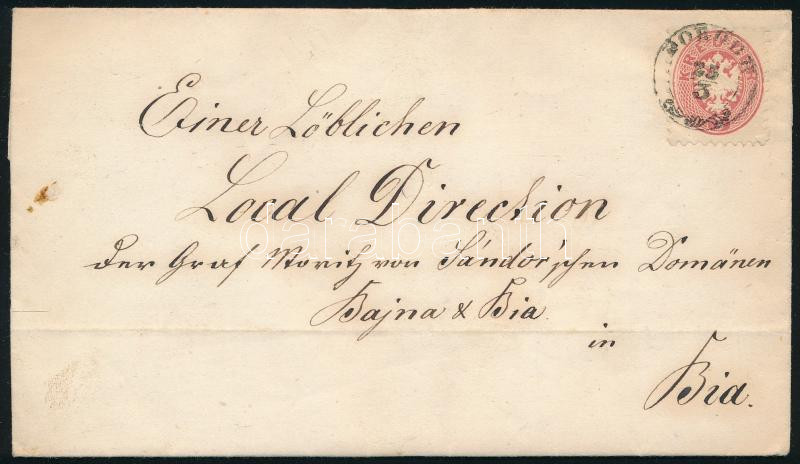 KREUZER
23
3
Einer Löblichen
Local Direction
der Graf Moritz von Sándor'schen Domänen
Bajna & Bia
in
Bia.
darabanth